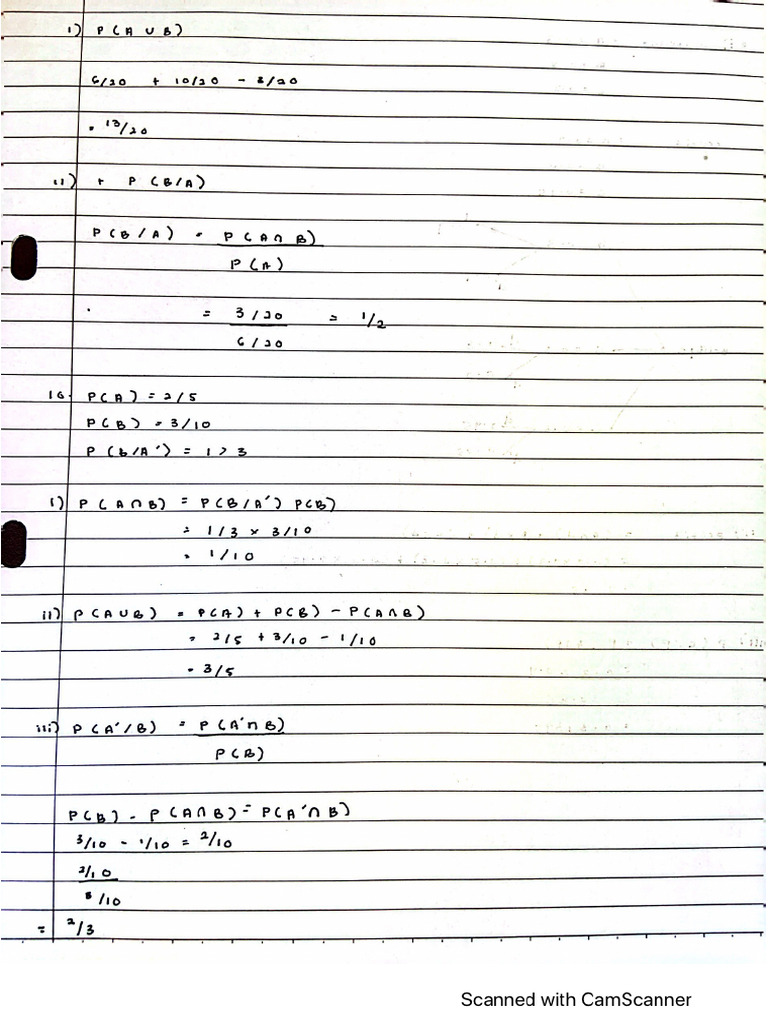 i) P(A ∪ B)
6/20 + 10/20 - 3/20
= 13/20
ii) + P(B/A)
P(B/A) = P(A∩B)
P(A)
= 3/20 = 1/2
6/20
16. P(A) = 2/5
P(B) = 3/10
P(b/A') = 1 > 3
i) P(A∩B) = P(B/A') P(B)
= 1/3 × 3/10
= 1/10
ii) P(A∪B) = P(A) + P(B) - P(A∩B)
= 2/5 + 3/10 - 1/10
= 3/5
iii) P(A'/B) = P(A'∩B)
P(B)
P(B) - P(A∩B) = P(A'∩B)
3/10 - 1/10 = 2/10
2/10
3/10
= 2/3
Scanned with CamScanner